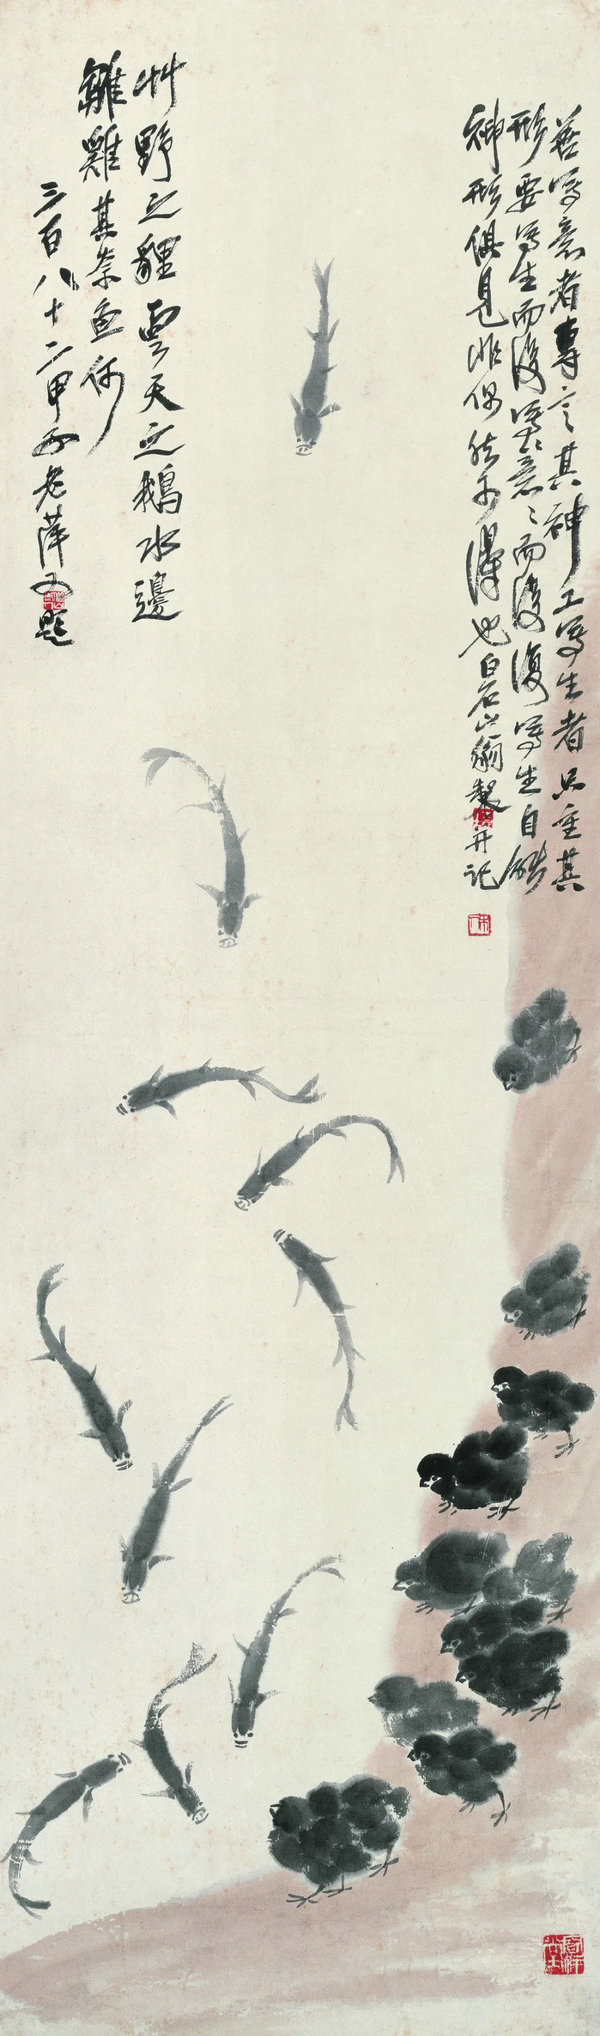 善写意者專言其神工写生者只重其
形要写生而後写意〻而後復写生自能
神形俱見非偶然可得也白石山翁製并记
艸野之貍雲天之鵝水邊
雛雞其奈魚何
三百八十二甲子老萍又題